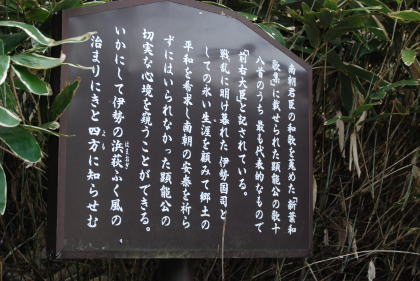 南朝君臣の和歌を蒐めた「新葉和
歌集」に載せられた顕能公の歌十
八首のうち最も代表的なもので
「前右大臣」と記されている。
戦乱に明け暮れた伊勢国司と
しての永い生涯を顧みて郷土の
平和を希求し南朝の安泰を祈ら
ずにはいられなかった顕能公の
切実な心境を窺うことができる。
いかにして伊勢の浜荻ふく風の
治まりにきと四方に知らせむ